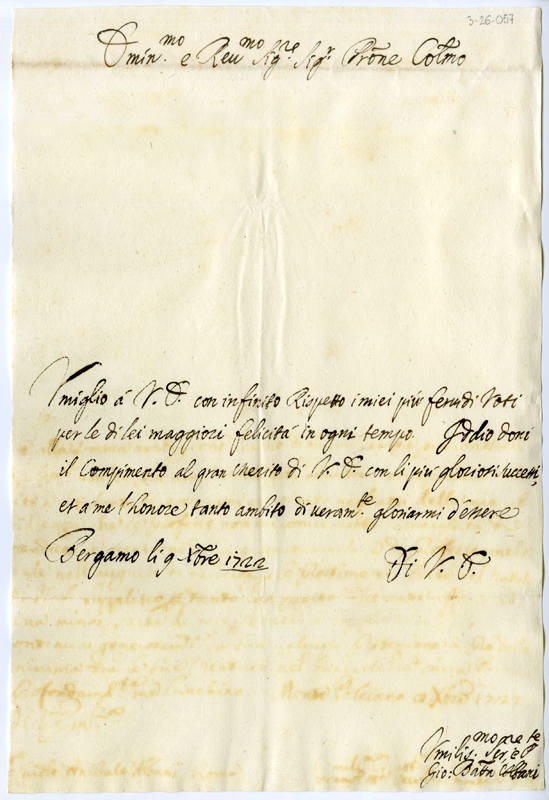 3-26-057
E͞min.mo e Reu.mo Sig.re Sig.r P͞rone Col͞mo
Vmiglio á V. E. con infinito Rispetto i miei piú feruidi Voti
per le di lei maggiori felicitá in ogni tempo. Iddio doni
il Compimento al gran Merito di V. E. con li piú gloriosi successi,
et à me l'honore tanto ambito di veram.te gloriarmi d'essere
Bergamo li 9 Xbre 1722
Di V. E.
Vmilis.mo
Gio: Batta